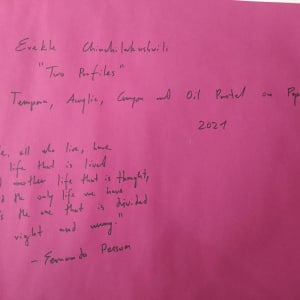 Erekle Chinchilakashvili
"Two Profiles"
Tempera, Acrylic, Crayon and Oil Pastel on Pap
2021
e, all who live, have
life that is lived
d another life that is thought,
d the only life we have
s the one that is divided
right and wrong."
- Fernando Pessoa